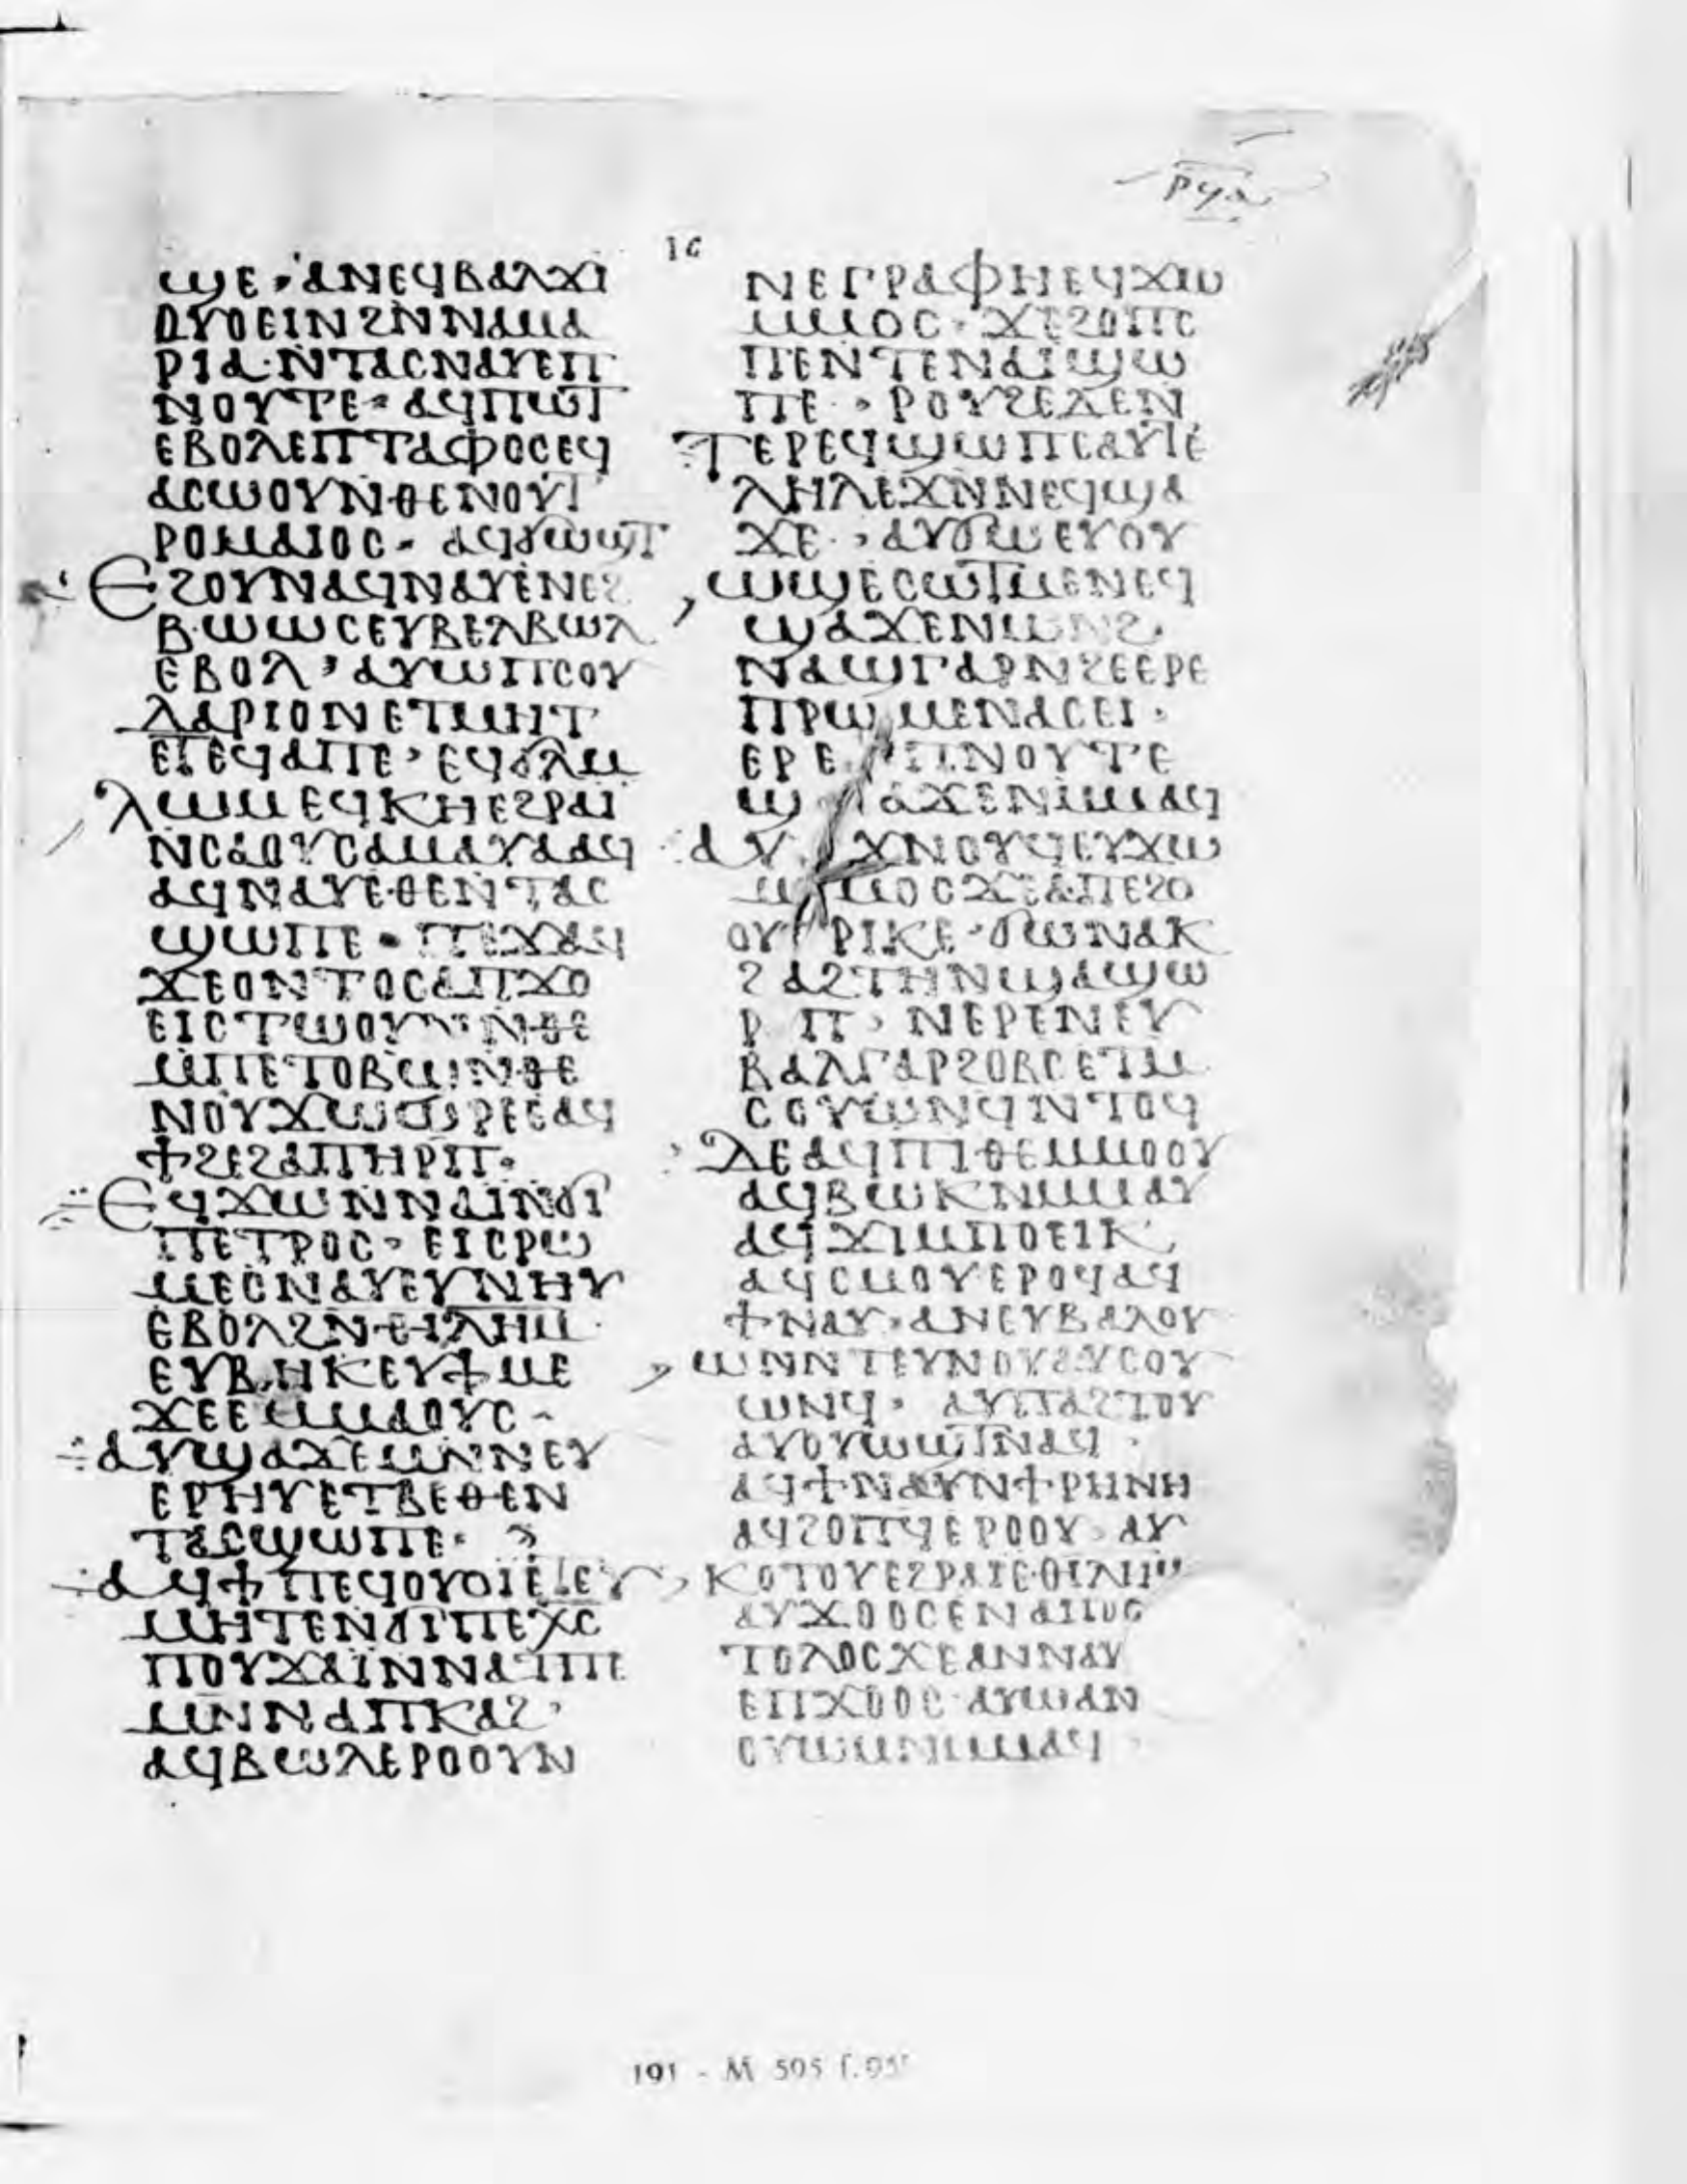 ⲣϥⲁ
ϣⲉ · ⲁⲛⲉϥⲃⲁⲗϫⲓ
ⲟⲩⲟⲉⲓⲛϩⲛⲛⲁⲙⲁ
ⲣⲓⲁ · ⲛⲧⲁⲥⲛⲁⲩⲉⲡ
ⲛⲟⲩⲧⲉ · ⲁϥⲡⲱⲧ
ⲉⲃⲟⲗⲉⲡⲧⲁⲫⲟⲥⲉϥ
ⲁⲥⲱⲟⲩⲛⲑⲉⲛⲟⲩⲧ
ⲣⲟⲙⲁⲓⲟⲥ · ⲁϥϭⲱϣⲧ
ⲉϩⲟⲩⲛⲁϥⲛⲁⲩⲉⲛⲉϩ
ⲃⲱⲱⲥⲉⲩⲃⲉⲗⲃⲱⲗ
ⲉⲃⲟⲗ · ⲁⲩⲱⲡⲥⲟⲩ
ⲇⲁⲣⲓⲟⲛⲉⲧⲙⲏⲧ
ⲉⲧⲉϥⲁⲡⲉ · ⲉϥϭⲗⲙ
ⲗⲱⲙⲉϥⲕⲏⲉϩⲣⲁⲓ
ⲛⲥⲁⲟⲩⲥⲁⲙⲁⲩⲁⲁϥ
ⲁϥⲛⲁⲩⲉⲑⲉⲛⲧⲁⲥ
ϣⲱⲡⲉ · ⲡⲉϫⲁϥ
ϫⲉⲟⲛⲧⲟⲥⲁⲡϫⲟ
ⲉⲓⲥⲧⲱⲟⲩⲛⲛⲑⲉ
ⲙⲡⲉⲧⲟⲃϣⲛⲑⲉ
ⲛⲟⲩϫⲱⲱⲣⲉⲉⲁϥ
ϯϩⲉϩⲁⲡⲏⲣⲡ ·
ⲉϥϫⲱⲛⲛⲁⲓⲛϭⲓ
ⲡⲉⲧⲣⲟⲥ · ⲉⲓⲥⲣⲱ
ⲙⲉⲥⲛⲁⲩⲉⲩⲛⲏⲩ
ⲉⲃⲟⲗϩⲛⲑⲓⲗⲏⲙ
ⲉⲩⲃⲏⲕⲉⲩϯⲙⲉ
ϫⲉⲉⲙⲙⲁⲟⲩⲥ ·
ⲁⲩϣⲁϫⲉⲙⲛⲛⲉⲩ
ⲉⲣⲏⲩⲉⲧⲃⲉⲑⲉⲛ
ⲧⲁⲥϣⲱⲡⲉ ·
ⲁϥϯⲡⲉϥⲟⲩⲟⲓⲉⲧⲉⲩ
ⲙⲏⲧⲉⲛϭⲓⲡⲉⲭⲥ
ⲡⲟⲩϫⲁⲓⲛⲛⲁⲧⲡⲉ
ⲙⲛⲛⲁⲡⲕⲁϩ ·
ⲁϥⲃⲱⲗⲉⲣⲟⲟⲩⲛ
ⲛⲉⲅⲣⲁⲫⲏⲉϥϫⲱ
ⲙⲙⲟⲥ · ϫⲉϩⲟⲡⲥ
ⲡⲉⲛⲧⲉⲛⲁⲓϣⲱ
ⲡⲉ · ⲣⲟⲩϩⲉⲇⲉⲛ
ⲧⲉⲣⲉϥϣⲱⲡⲉⲁⲩⲧⲉ
ⲗⲏⲗⲉϫⲛⲛⲉϥϣⲁ
ϫⲉ · ⲁⲩϭⲱⲉⲩⲟⲩ
ⲱϣⲉⲥⲱⲧⲙⲉⲛⲉϥ
ϣⲁϫⲉⲛⲱⲛϩ
ⲛⲁϣⲅⲁⲣⲛϩⲉⲉⲣⲉ
ⲡⲣⲱⲙⲉⲛⲁⲥⲉⲓ ·
ⲉⲣⲉⲡⲛⲟⲩⲧⲉ
ϣⲁϫⲉⲛⲙⲙⲁϥ
ⲁⲩϫⲛⲟⲩϥⲉⲩϫⲱ
ⲙⲙⲟⲥϫⲉⲁⲡⲉϩⲟ
ⲟⲩⲣⲓⲕⲉ · ϭⲱⲛⲁⲕ
ϩⲁϩⲧⲏⲛϣⲁϣⲱ
ⲣⲡ · ⲛⲉⲣⲉⲛⲉⲩ
ⲃⲁⲗⲅⲁⲣϩⲟⲃⲥⲉⲧⲙ
ⲥⲟⲩⲱⲛϥⲛⲧⲟϥ
ⲇⲉⲁϥⲡⲓⲑⲉⲙⲙⲟⲟⲩ
ⲁϥⲃⲱⲕⲛⲙⲙⲁⲩ
ⲁϥϫⲓⲙⲡⲟⲉⲓⲕ
ⲁϥⲥⲙⲟⲩⲉⲣⲟϥⲁϥ
ϯⲛⲁⲩ · ⲁⲛⲉⲩⲃⲁⲗⲟⲩ
ⲱⲛⲛⲧⲉⲩⲛⲟⲩⲁⲩⲥⲟⲩ
ⲱⲛϥ · ⲁⲩⲡⲁϩⲧⲟⲩ
ⲁⲩⲟⲩⲱϣⲧⲛⲁϥ ·
ⲁϥϯⲛⲁⲩⲛϯⲣⲏⲛⲏ
ⲁϥϩⲟⲡϥⲉⲣⲟⲟⲩ · ⲁⲩ
ⲕⲟⲧⲟⲩⲉϩⲣⲁⲓⲉⲑⲓⲗⲏⲙ
ⲁⲩϫⲟⲟⲥⲉⲛⲁⲡⲟⲥ
ⲧⲟⲗⲟⲥϫⲉⲁⲛⲛⲁⲩ
ⲉⲡϫⲟⲉⲓⲥ ⲁⲩⲱⲁⲛ
ⲟⲩⲱⲙⲛⲙⲙⲁϥ
191 - M 595 f.95